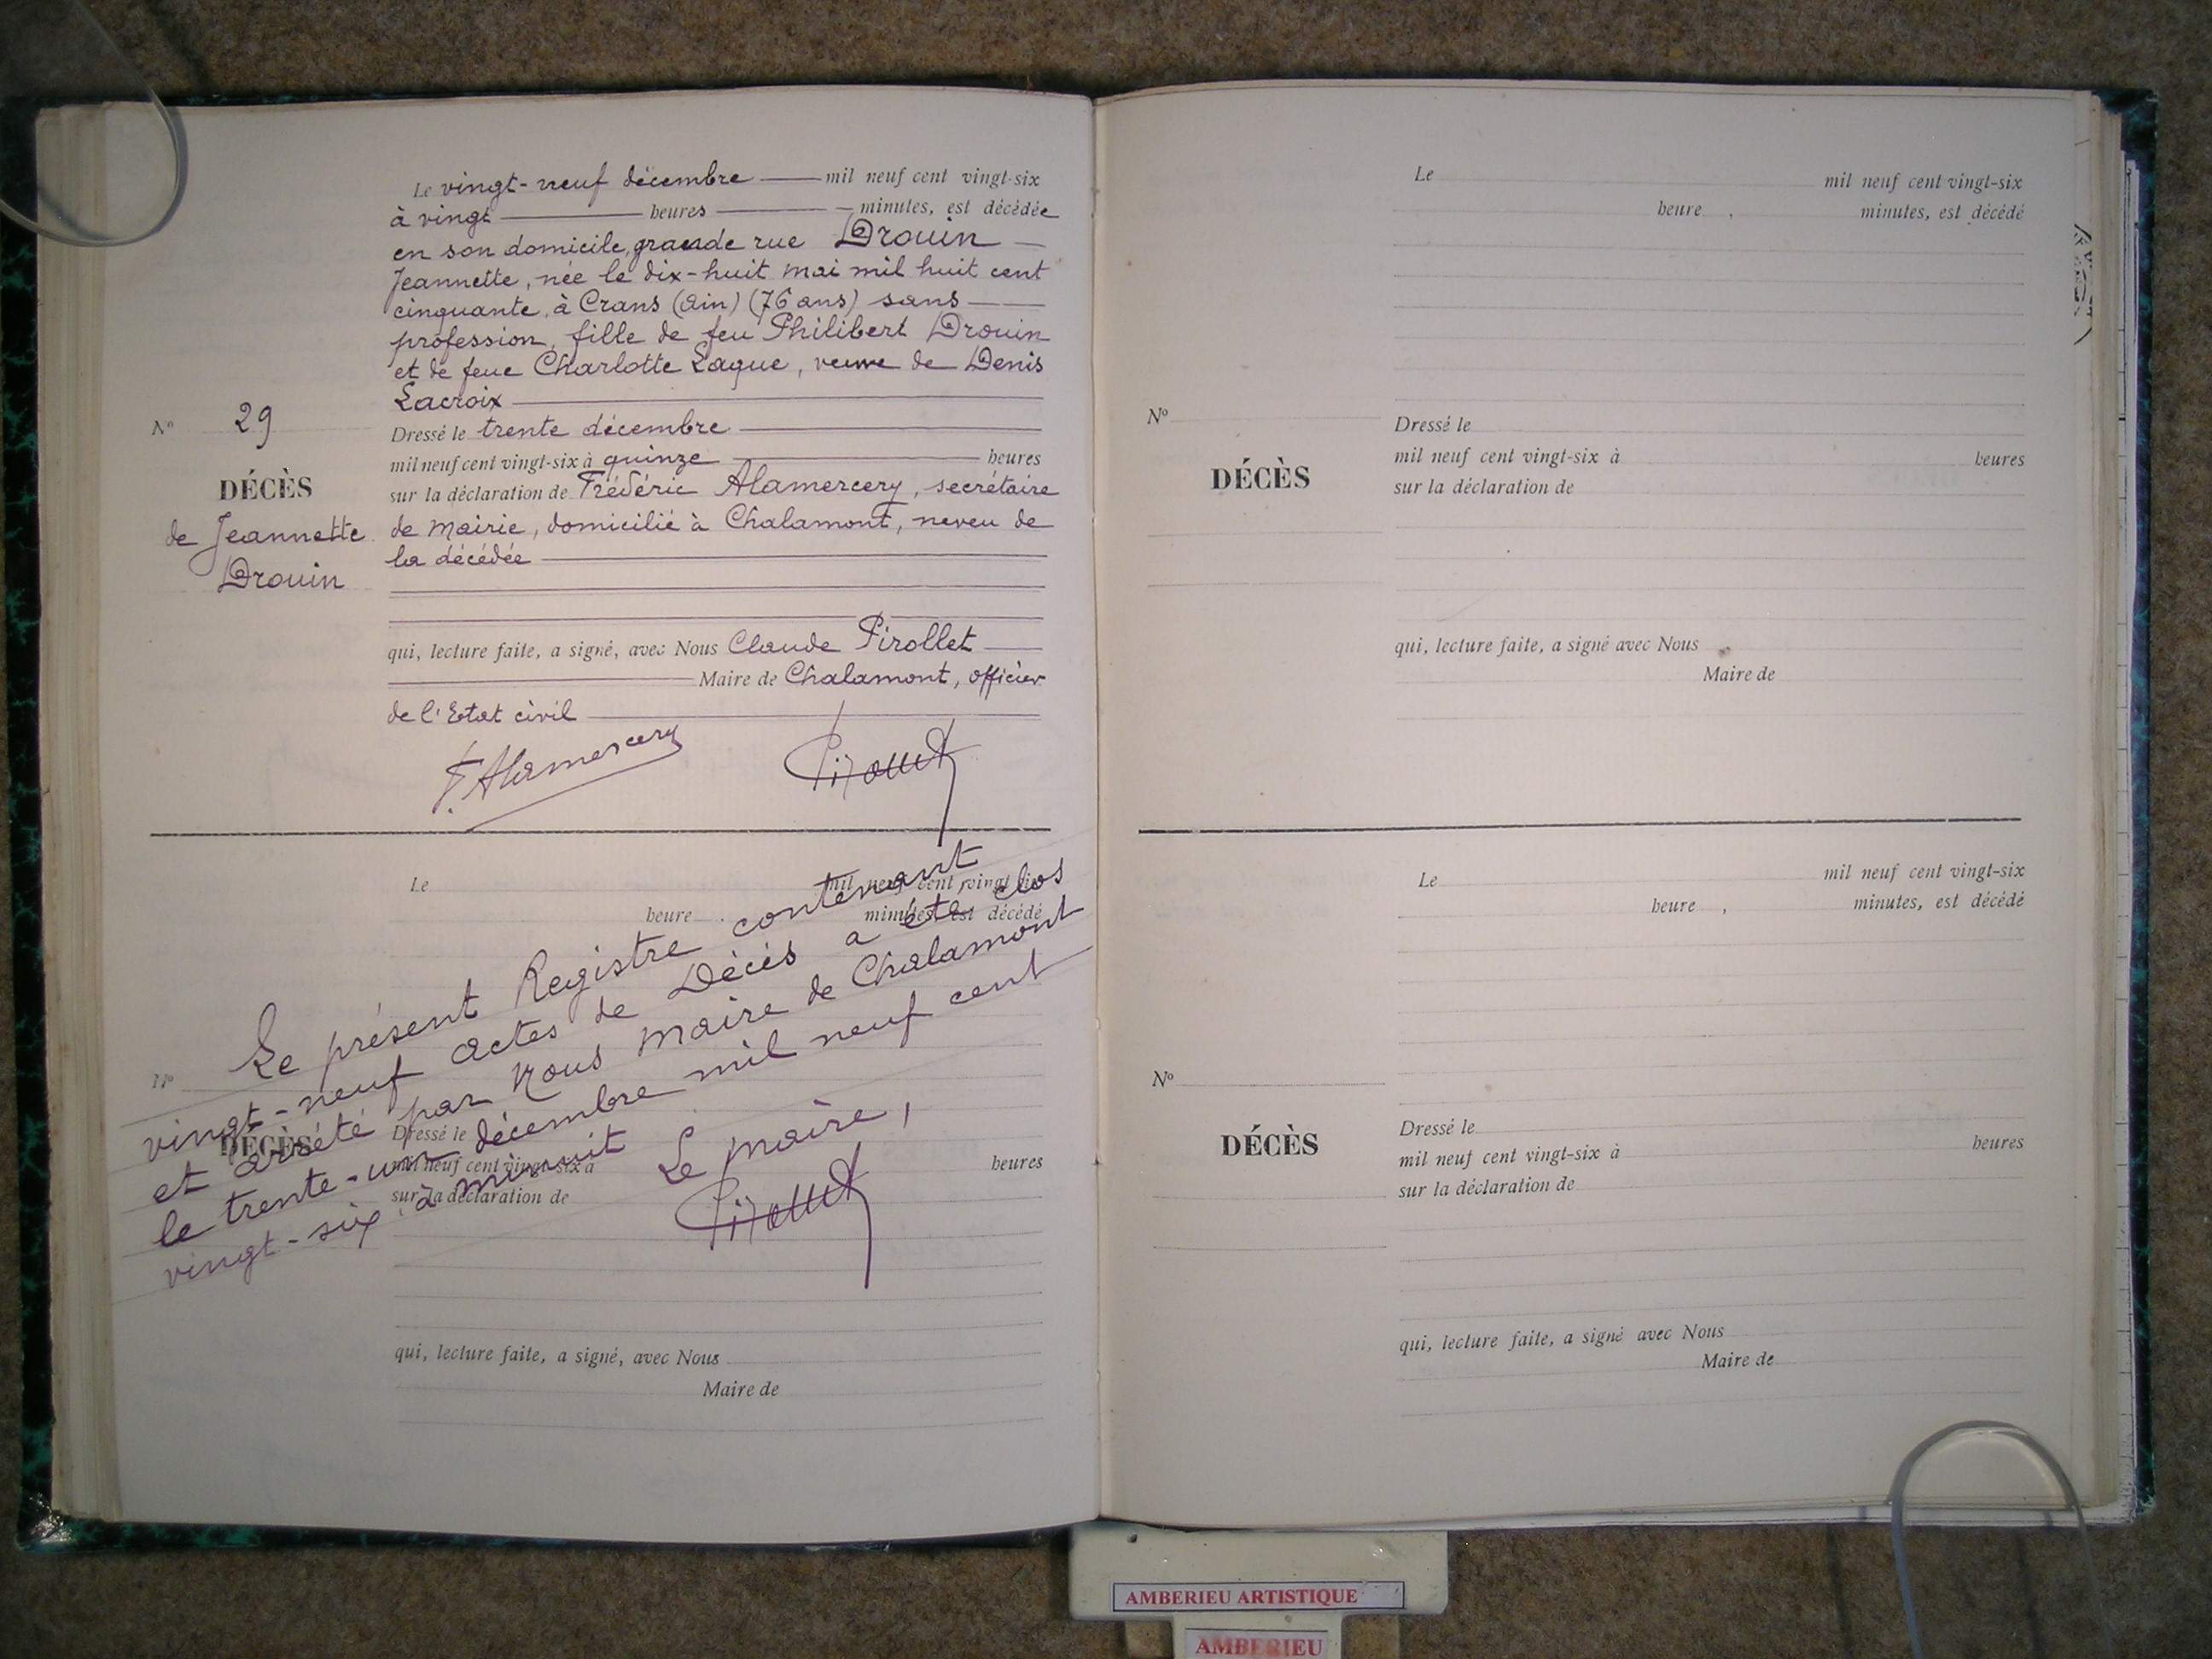 Le vingt-neuf décembre mil neuf cent vingt-six
à vingt heures minutes, est décédée
en son domicile, grande rue Drouin
Jeannette, née le dix-huit mai mil huit cent
cinquante, à Crans (Ain) (76 ans) sans
profession, fille de feu Philibert Drouin
et de feue Charlotte Lague, veuve de Denis
Lacroix
N° 29
DÉCÈS
de Jeannette
Drouin
Dressé le trente décembre
mil neuf cent vingt-six à quinze heures
sur la déclaration de Frédéric Alamercery, secrétaire
de mairie, domicilié à Chalamont, neveu de
la décédée
qui, lecture faite, a signé, avec Nous Claude Pirollet
Maire de Chalamont, officier
de l'Etat civil
F. Alamercery
Pirollet
Le mil neuf cent vingt-six
heure , minutes, est décédé
Le présent Registre contenant
vingt-neuf actes de Décès a été clos
et arrêté par Nous Maire de Chalamont
le trente-un décembre mil neuf cent
vingt-six, à minuit
Le maire,
Pirollet
N°
DÉCÈS
Dressé le
mil neuf cent vingt-six à heures
sur la déclaration de
qui, lecture faite, a signé, avec Nous
Maire de
Le mil neuf cent vingt-six
heure , minutes, est décédé
N°
DÉCÈS
Dressé le
mil neuf cent vingt-six à heures
sur la déclaration de
qui, lecture faite, a signé avec Nous
Maire de
Le mil neuf cent vingt-six
heure , minutes, est décédé
N°
DÉCÈS
Dressé le
mil neuf cent vingt-six à heures
sur la déclaration de
qui, lecture faite, a signé avec Nous
Maire de
AMBERIEU ARTISTIQUE
AMBERIEU